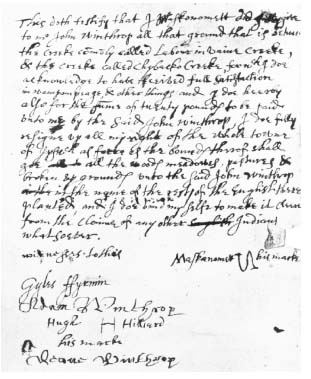 This doth testify that I Maskonomett did give
to me John Winthrop all that ground that is betwene
the creeke comonly called Labour in vaine Creeke,
& the creeke called Chybacko Creeke, for wch I doe
acknowledge to have received full satisfaction
in wampampeage & other things and I doe hereby
also for the summe of twenty pounds to be paid
unto me by the said John Winthrop, I doe fully
resigne up all my right of the whole towne
of as farre as the bounds thereof shall
goe all the woods meadowes, pastures &
broken up grounds unto the said John Winthrop
in the name of the rest of the English there
planted, and I doe bind my selfe to make it cleere
from the claime of any other Indians
whatsoever.
witnesses to this
Maskanomet his marke
Gyles Fyrmin
Adam Winthrop
Hugh H Hilliard
his marke
Deane Winthrop